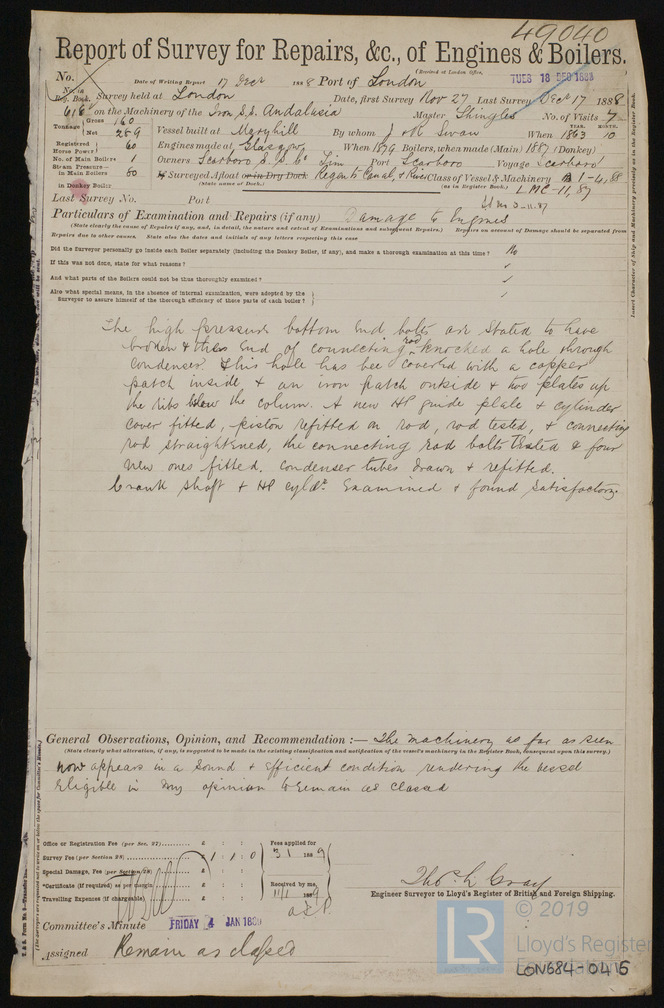 49040
Report of Survey for Repairs, &c., of Engines & Boilers.
(Received at London Office,
TUES 18 DEC 1888
No.
Date of Writing Report 17 Decr 1888 Port of London
No. in Reg. Book. Survey held at London Date, first Survey Nov 27 Last Survey Decr 17 1888
618 on the Machinery of the Iron S.S. Andalusia Master Shingles No. of Visits 7
Tonnage Gross 160 Net 269 Vessel built at Maryhill By whom J & R Swan When YEAR. 1863 MONTH. 10
Registered Horse Power 60 Engines made at Glasgow When 1874 Boilers, when made (Main) 1887 (Donkey)
No. of Main Boilers 1 Owners Scarboro S.S. Co Lim Port Scarboro Voyage Scarboro!
Steam Pressure in Main Boilers 80 If Surveyed Afloat or in Dry Dock Regents Canal, & River Class of Vessel & Machinery
(State name of Dock.) (as in Register Book.) LMC-11,87
in Donkey Boiler
Last Survey No. Port
Particulars of Examination and Repairs (if any) Damage to Engines
(State clearly the cause of Repairs if any, and, in detail, the nature and extent of Examinations and subsequent Repairs.) Repairs on account of Damage should be separated from
Repairs due to other causes. State also the dates and initials of any letters respecting this case
Did the Surveyor personally go inside each Boiler separately (including the Donkey Boiler, if any), and make a thorough examination at this time? No
If this was not done, state for what reasons?
And what parts of the Boilers could not be thus thoroughly examined?
Also what special means, in the absence of internal examination, were adopted by the
Surveyor to assure himself of the thorough efficiency of those parts of each boiler?
The high pressure bottom end bolts are stated to have
broken & this end of connecting rod knocked a hole through
condenser. This hole has bee covered with a copper
patch inside & an iron patch outside & two plates up
the ribs the colum. A new HP guide plate & cylinder
cover fitted, piston refitted on rod, rod tested, & connecting
rod straightened, the connecting rod bolts tested & four
new ones fitted. Condenser tubes drawn & refitted.
Crank shaft & HP cyldr examined & found satisfactory.
Insert Character of Ship and Machinery precisely as in the Register Book.
General Observations, Opinion, and Recommendation :— The machinery as far as seen
(State clearly what alteration, if any, is suggested to be made in the existing classification and notification of the vessel's machinery in the Register Book, consequent upon this survey.)
now appears in a sound & efficient condition rendering the vessel
eligible in my opinion to remain as classed
Office or Registration Fee (per Sec. 27) £ : :
Survey Fee (per Section 28) £ 1 : 1 : 0
Special Damage, Fee (per Section 28) £ : :
*Certificate (if required) as per margin £ : :
Travelling Expenses (if chargeable) £ : :
Fees applied for
3 1 1889
Received by me,
11/1 1889
Thos. G. Gray
Engineer Surveyor to Lloyd's Register of British and Foreign Shipping.
Committee's Minute FRIDAY 4 JAN 1889
Assigned Remain as classed
© 2019
LR
Lloyd's Register
Foundation
LON684-0416